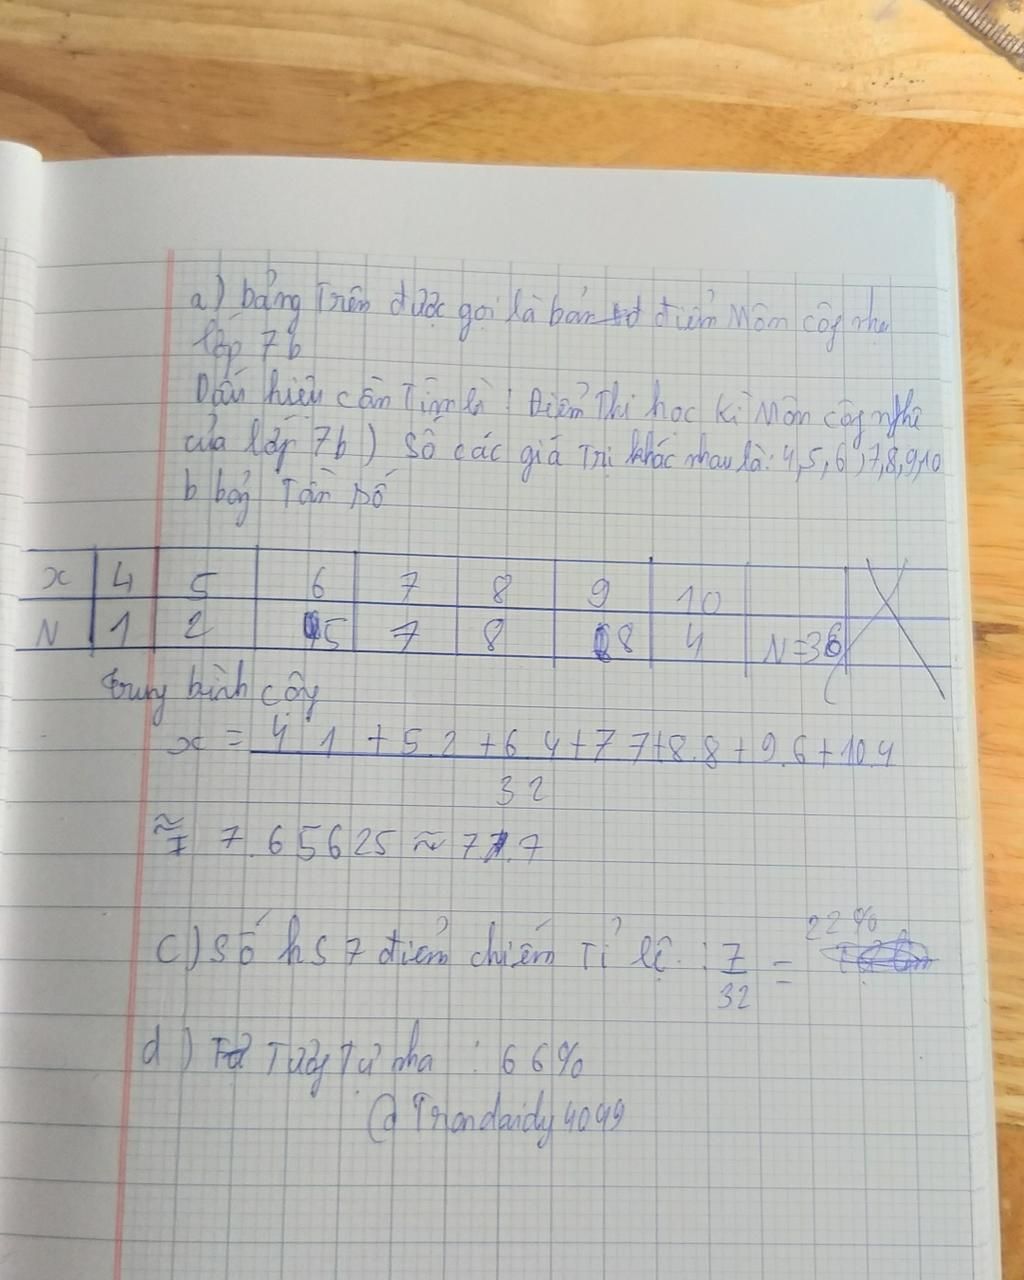 a) bảng Trên được gọi là bản điểm Môn côg nha
lớp 7b
Dấu hiệu cần Tìm là : Điểm Thi học kì Môn côg nghê
của lớp 7b ) Số các giá Trị khác nhau là: 4,5,6,7,8,9,10
b bảg Tần số
x 4 5 6 7 8 9 10
N 1 2 5 7 8 8 4 N=36
Trug bình côg
x = 4 1 + 5.2 + 6.4+7 7+8.8+9.6+10.4
32
≈ 7.65625 ≈ 7.7
22%
c) số hs 7 điểm chiếm Tỉ lệ : 7 =
32
d ) Tươg Tự nha : 66%
@Trandaidy4049